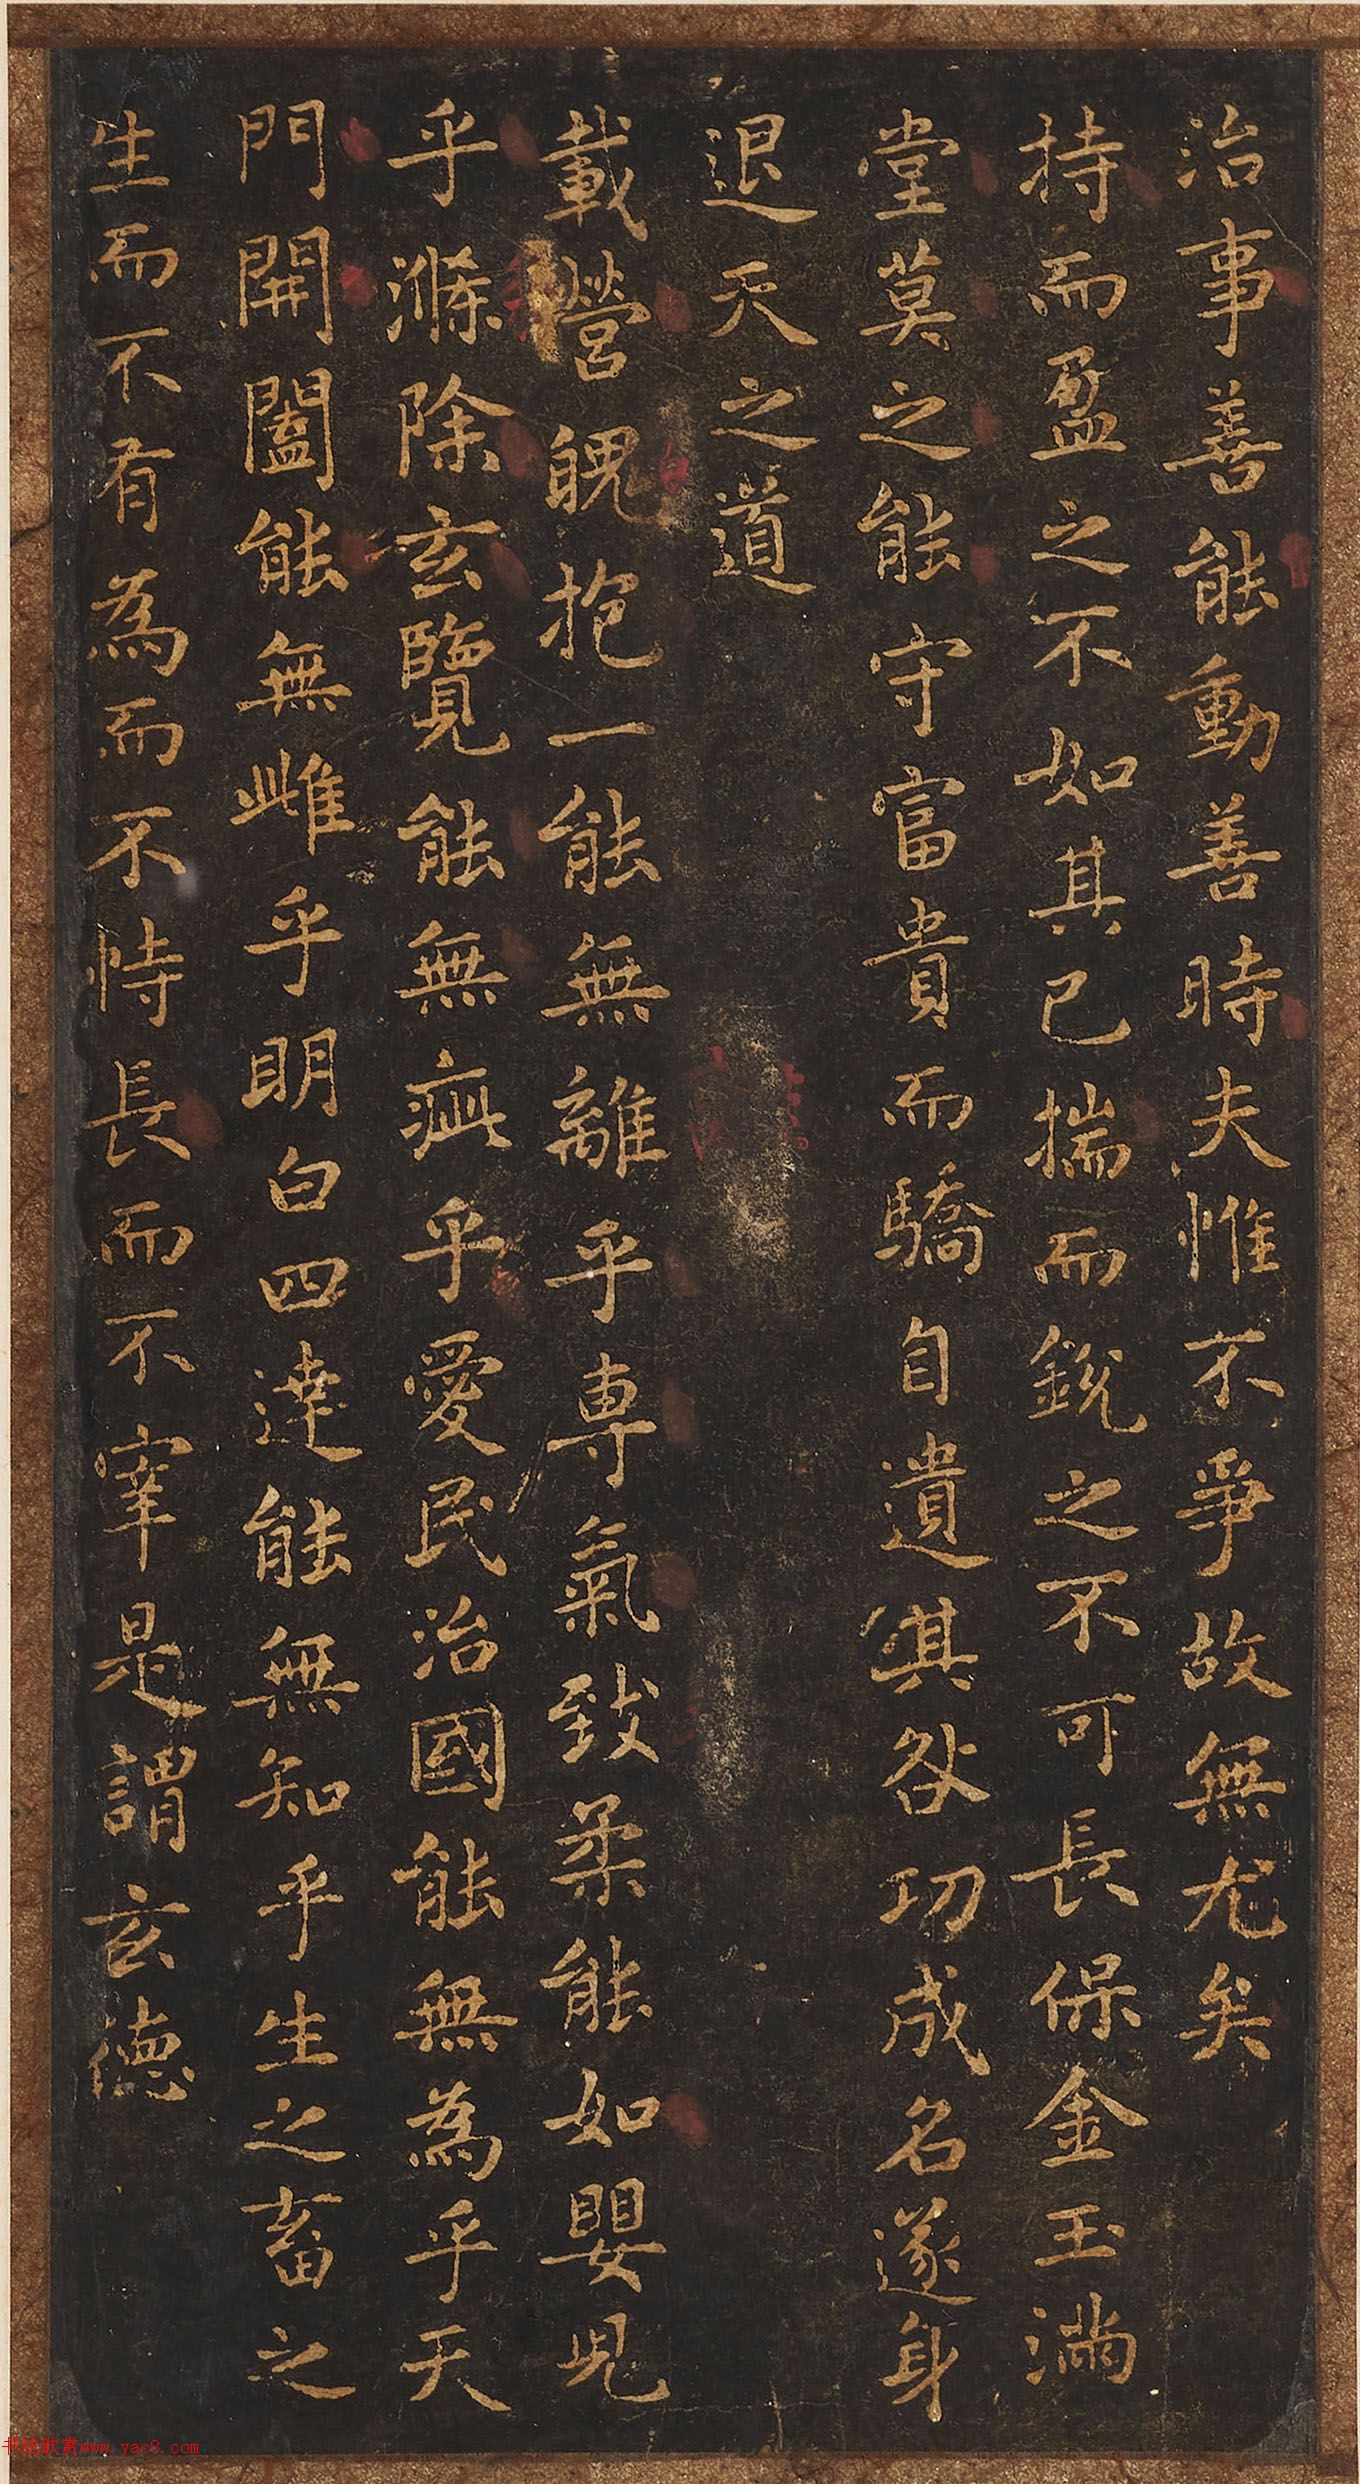 治事善能動善時夫惟不爭故無尤矣
持而盈之不如其已揣而銳之不可長保金玉滿
堂莫之能守富貴而驕自遺其咎功成名遂身
退天之道
載營魄抱一能無離乎専氣致柔能如嬰兒
乎滌除玄覽能無疵乎愛民治國能無為乎天
門開闔能無雌乎明白四達能無知乎生之畜之
生而不有為而不恃長而不宰是謂玄德
书法欣赏www.yac8.com